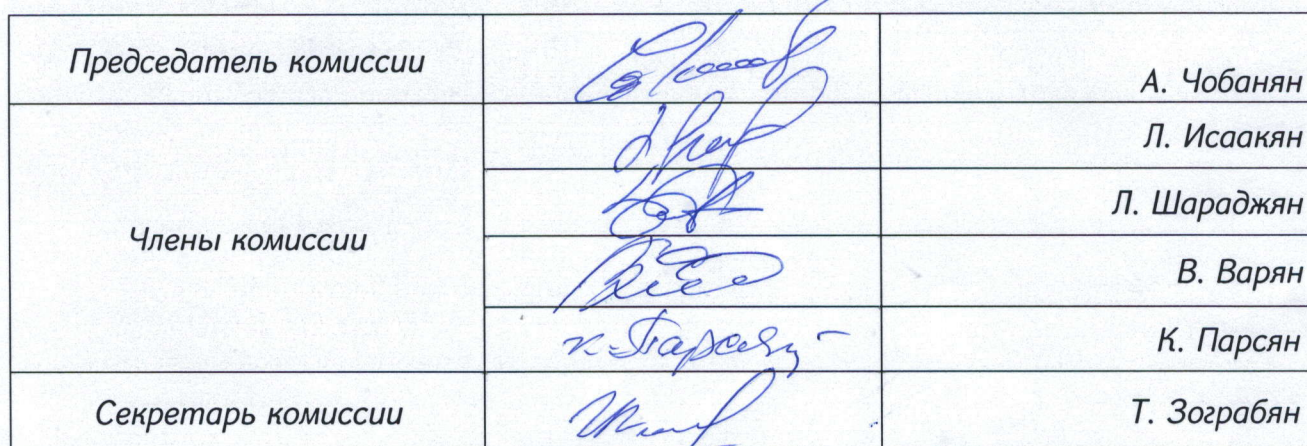 Председатель комиссии
А. Чобанян
Члены комиссии
Л. Исаакян
Л. Шараджян
В. Варян
к. Парсян
К. Парсян
Секретарь комиссии
Т. Зограбян